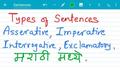 Types of Sentences
Asserative, Imperative
Interrogative, Exclamatory,
मराठी मध्ये.